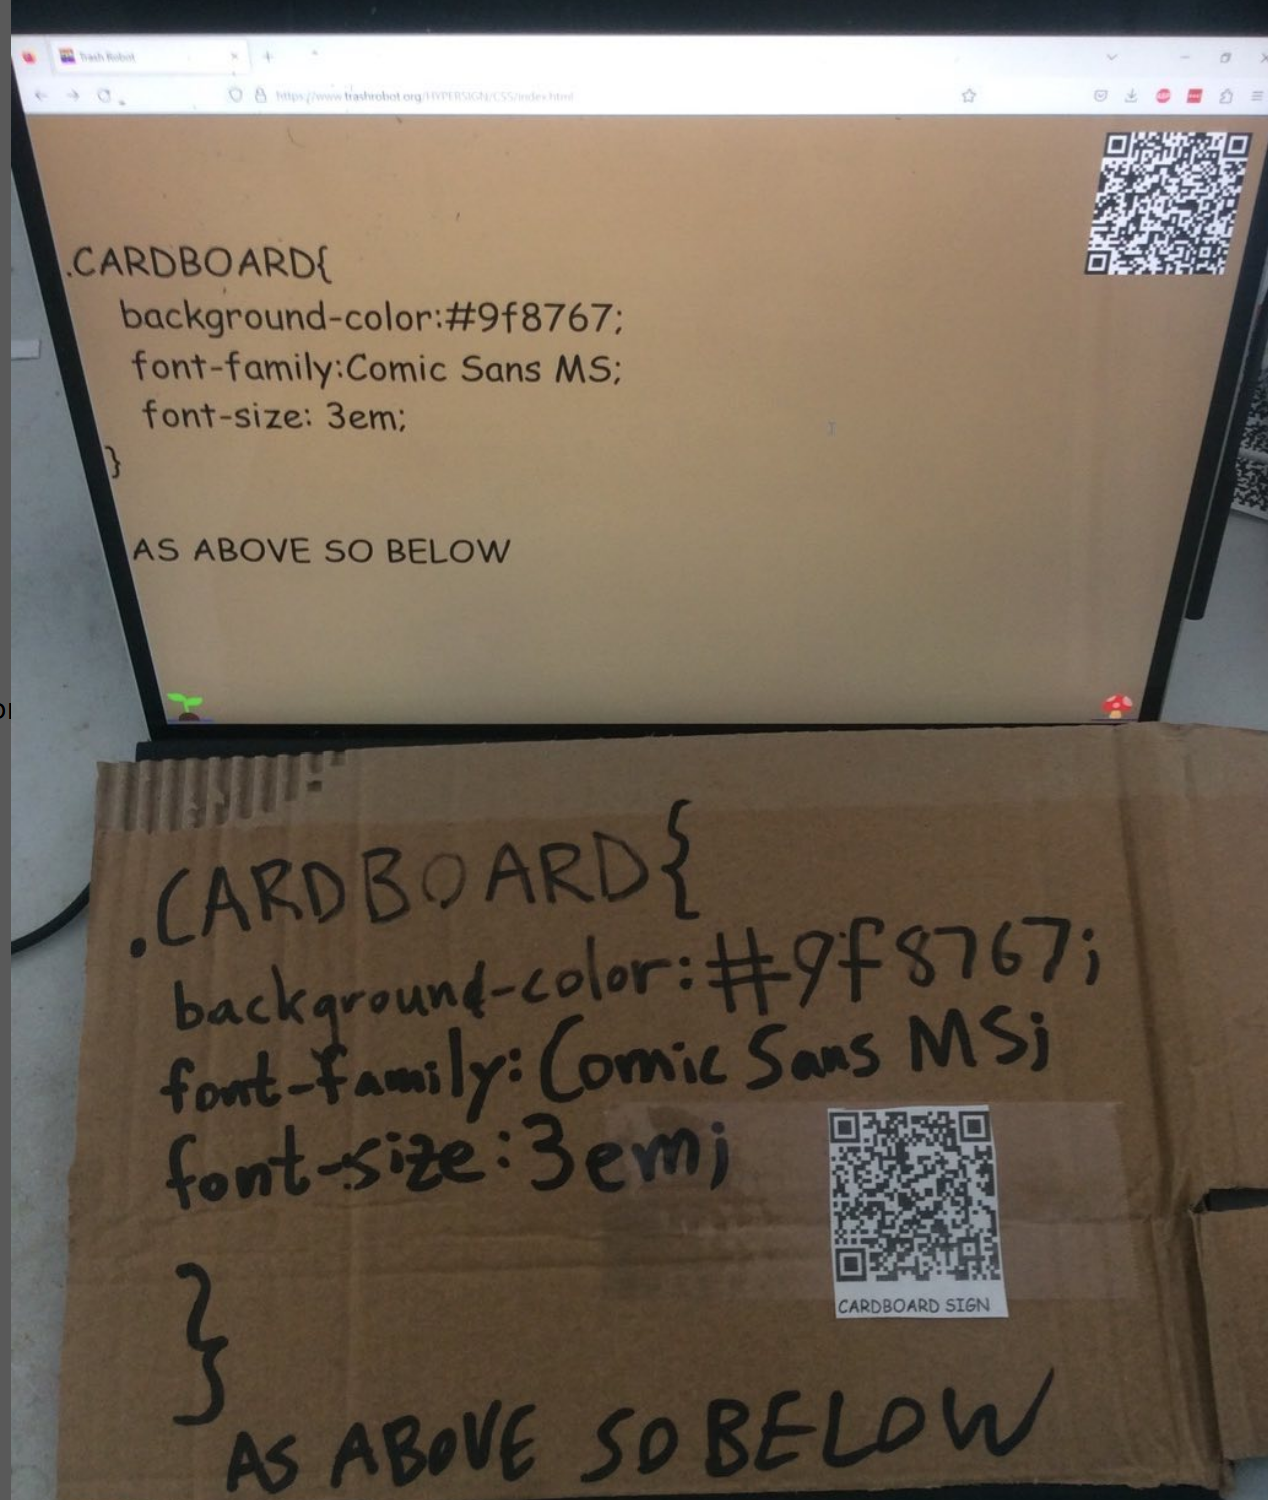 Trash Robot
https://www.trashrobot.org/HYPERSIGN/CSS/index.html
.CARDBOARD{
background-color:#9f8767;
font-family:Comic Sans MS;
font-size: 3em;
}
AS ABOVE SO BELOW
.CARDBOARD{
background-color:#9f8767;
font-family:Comic Sans MS;
font-size:3em;
CARDBOARD SIGN
}
AS ABOVE SO BELOW